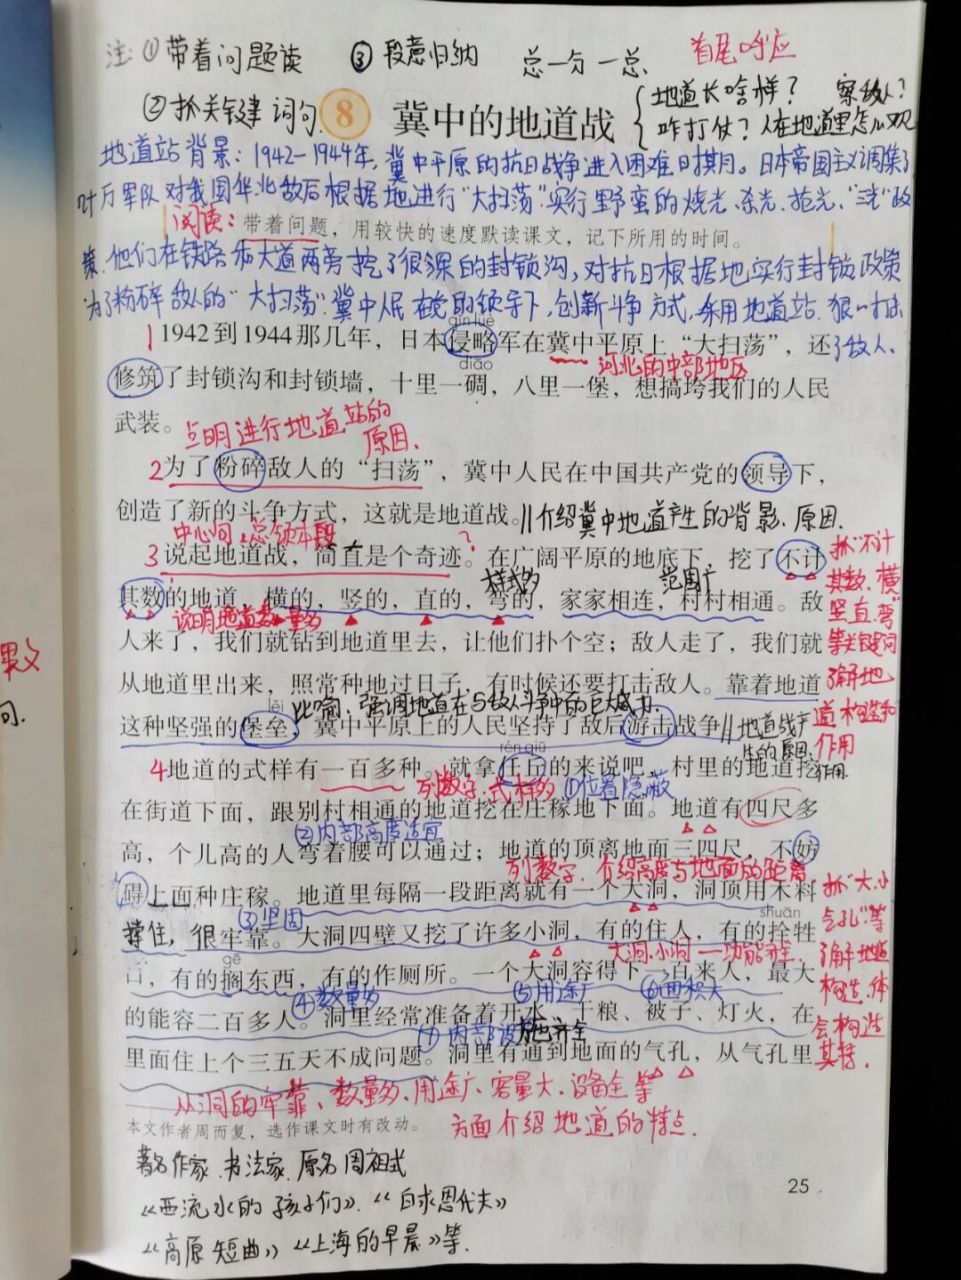 注:①带着问题读 ③段意归纳 总一分一总 首尾呼应
②抓关键词句.
8 冀中的地道战
地道长啥样? 察敌人?
咋打仗?人在地道里怎么观
地道站背景:1942-1944年,冀中平原的抗日战争进入困难日期月。日本帝国主义调集了
叶万军队对我国华北敌后根据地进行“大扫荡”实行野蛮的烧光、杀光、抢光、“三光”政
阅读:带着问题,用较快的速度默读课文,记下所用的时间。
策.他们在铁路和大道两旁挖了很深的封锁沟,对抗日根据地实行封锁政策
为了粉碎敌人的“大扫荡”冀中人民在党的领导下,创新斗争方式,采用地道站.狠一打击
qīn lüè
1 1942到1944那几年,日本侵略军在冀中平原上“大扫荡”,还
了敌人.
河北的中部地区
diāo
修筑了封锁沟和封锁墙,十里一碉,八里一堡,想搞垮我们的人民
武装。
点明进行地道站的
原因.
2为了粉碎敌人的“扫荡”,冀中人民在中国共产党的领导下,
创造了新的斗争方式,这就是地道战。
||介绍冀中地道产生的背景、原因.
中心句,总领本段
3说起地道战,简直是个奇迹。在广阔平原的地底下,挖了不计
? 大样式多 范围广
其数的地道,横的,竖的,直的,弯的,家家相连,村村相通。敌
说明地道数量多
抓“不计
其数、横
竖直、弯”
等关键词
了解地
道构造和
作用
人来了,我们就钻到地道里去,让他们扑个空;敌人走了,我们就
从地道里出来,照常种地过日子,有时候还要打击敌人。靠着地道
lěi
比喻,强调地道在与敌人斗争中的巨大威力.
这种坚强的堡垒,冀中平原上的人民坚持了敌后游击战争
||地道战产
生的原因,
作用.
rén qiū
4地道的式样有一百多种。就拿任丘的来说吧,村里的地道挖
列数字:式样多 ①位置隐蔽
在街道下面,跟别村相通的地道挖在庄稼地下面。地道有四尺多
②内部高度适宜
高,个儿高的人弯着腰可以通过;地道的顶离地面三四尺,不妨
列数字.介绍高度与地面的距离
碍上面种庄稼。地道里每隔一段距离就有一个大洞,洞顶用木料
③坚固
shuān
撑住,很牢靠。大洞四壁又挖了许多小洞,有的住人,有的拴牲
大洞小洞一功能齐全.
抓“大、小
气孔”等
了解地道
构造.体
会构造
其特.
gē
口,有的搁东西,有的作厕所。一个大洞容得下一百来人,最大
④数量多 ⑤用途广 ⑥面积大
的能容二百多人。洞里经常准备着开水、干粮、被子、灯火,在
⑦内部设施齐全
里面住上个三五天不成问题。洞里有通到地面的气孔,从气孔里
从洞的牢靠、数量多、用途广、容量大、设备全等
方面介绍地道的特点.
本文作者周而复,选作课文时有改动。
著名作家.书法家.原名周祖式
《西流水的孩子们》.《白求恩大夫》
《高原短曲》《上海的早晨》等.
25